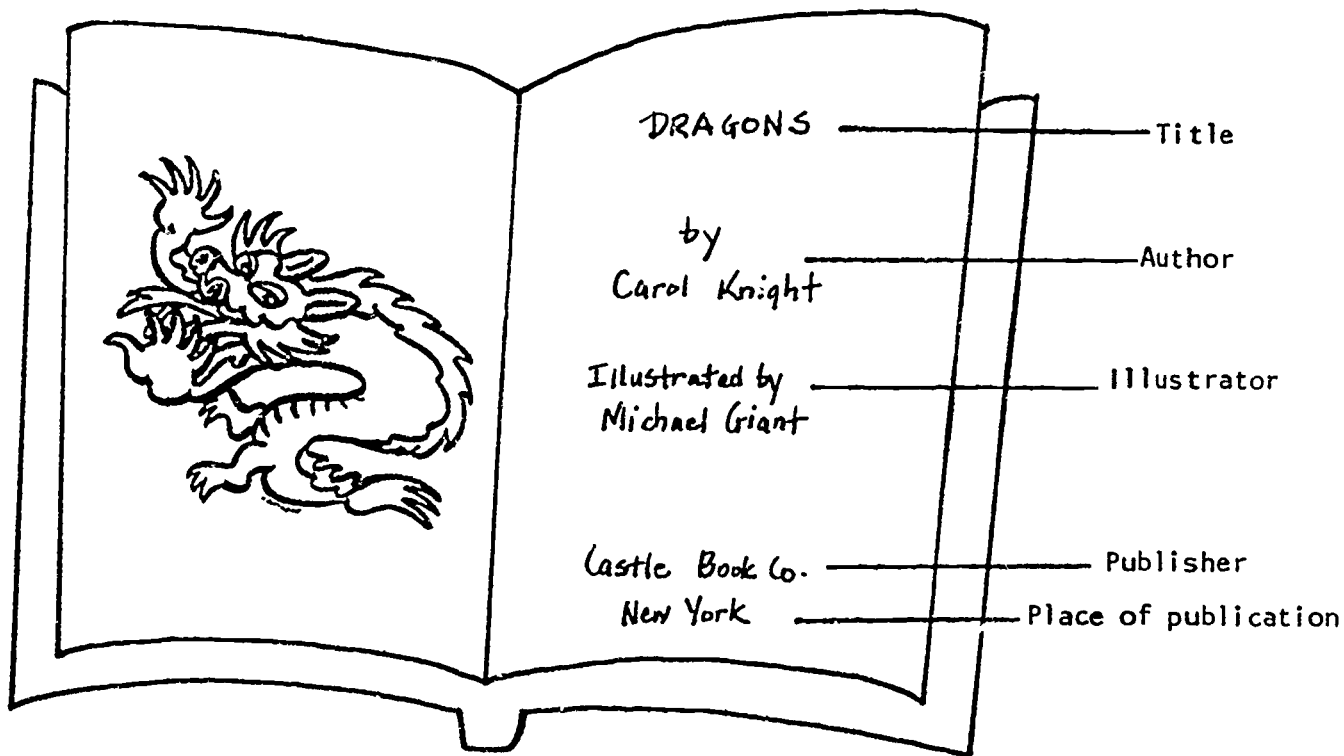 DRAGONS Title
by
Carol Knight Author
Illustrated by Illustrator
Michael Giant
Castle Book Co. Publisher
New York Place of publication